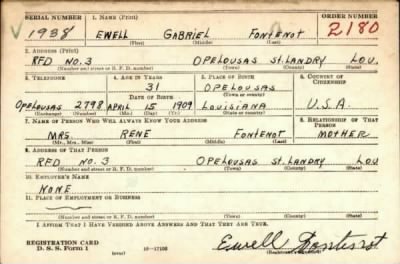 SERIAL NUMBER 1. NAME (Print) ORDER NUMBER
V 1938 EWELL GABRIEL FONTENOT 2180
(First) (Middle) (Last)
2. ADDRESS (Print)
RFD NO. 3 OPELOUSAS ST. LANDRY LOU.
(Number and street or R. F. D. number) (Town) (County) (State)
3. TELEPHONE 4. AGE IN YEARS 5. PLACE OF BIRTH 6. COUNTRY OF CITIZENSHIP
31 OPELOUSAS
DATE OF BIRTH (Town or county)
OPELOUSAS 2798 APRIL 15 1909 LOUISIANA U.S.A.
(Exchange) (Number) (Mo.) (Day) (Yr.) (State or country)
7. NAME OF PERSON WHO WILL ALWAYS KNOW YOUR ADDRESS 8. RELATIONSHIP OF THAT PERSON
MRS. RENE FONTENOT MOTHER
(Mr., Mrs., Miss) (First) (Middle) (Last)
9. ADDRESS OF THAT PERSON
RFD NO. 3 OPELOUSAS ST. LANDRY LOU
(Number and street or R. F. D. number) (Town) (County) (State)
10. EMPLOYER'S NAME
NONE
11. PLACE OF EMPLOYMENT OR BUSINESS
(Number and street or R. F. D. number) (Town) (County) (State)
I AFFIRM THAT I HAVE VERIFIED ABOVE ANSWERS AND THAT THEY ARE TRUE.
REGISTRATION CARD
D. S. S. Form 1 (over) 16—17105 Ewell Fontenot